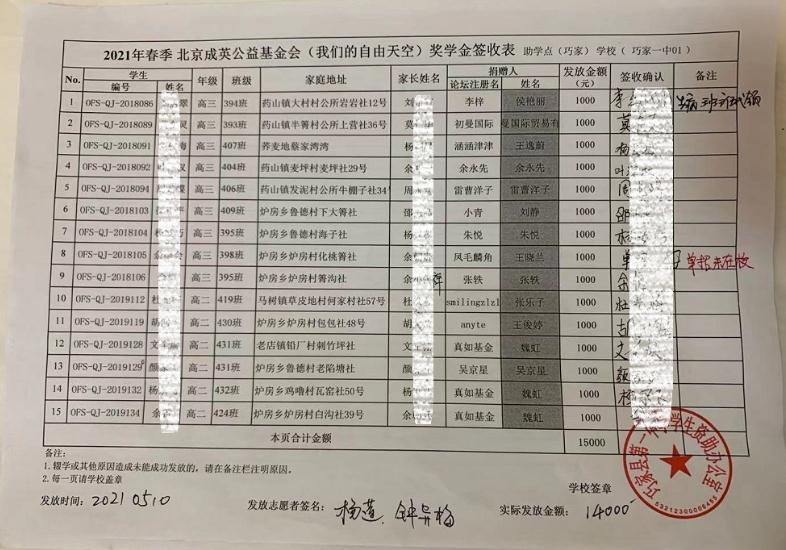 2021年春季 北京成英公益基金会（我们的自由天空）奖学金签收表 助学点（巧家）学校（ 巧家一中01 ）
No. 学生 年级 班级 家庭地址 家长姓名 捐赠人 发放金额（元） 签收确认 备注
编号 姓名 论坛注册名 姓名
1 OFS-QJ-2018086 翠 高三 394班 药山镇大村村公所岩岩社12号 刘 李梓 侯艳丽 1000 李
2 OFS-QJ-2018089 灵 高三 393班 药山镇半箐村公所上营社36号 莫 初曼国际 曼国际贸易有 1000 莫
3 OFS-QJ-2018091 梅 高三 407班 荞麦地蔡家湾湾 杨 涵涵津津 王逸蔚 1000 杨
4 OFS-QJ-2018092 叶 汉 高三 404班 药山镇麦坪村麦坪社29号 余 余永先 余永先 1000 叶
5 OFS-QJ-2018094 高三 406班 药山镇发泥村公所牛棚子社34 周 雷曹洋子 雷曹洋子 1000 周
6 OFS-QJ-2018103 高三 409班 炉房乡鲁德村下大箐社 邵 小青 刘静 1000 邵
7 OFS-QJ-2018104 高三 395班 炉房乡鲁德村海子社 杨 朱悦 朱悦 1000 杨
8 OFS-QJ-2018105 高三 398班 炉房乡炉房村化桃箐社 余 凤毛麟角 王晓兰 1000 单
9 OFS-QJ-2018106 高三 395班 炉房乡炉房村箐沟社 余 张轶 张轶 1000 余
10 OFS-QJ-2019112 杜 高二 419班 马树镇草皮地村何家村社57号 杜 smilingzlzl 张乐子 1000 杜
11 OFS-QJ-2019119 胡 高二 430班 炉房乡炉房村包包社48号 胡 anyte 王俊婷 1000 胡
12 OFS-QJ-2019128 文 高二 431班 老店镇铅厂村刺竹坪社 文 真如基金 魏虹 1000 文
13 OFS-QJ-2019129 颜 高二 431班 炉房乡鲁德村老陷塘社 颜 吴京星 吴京星 1000
14 OFS-QJ-2019132 杨 高二 432班 炉房乡鸡噜村瓦窑社50号 杨 真如基金 魏虹 1000 杨
15 OFS-QJ-2019134 余 高二 424班 炉房乡炉房村白沟社39号 余 真如基金 魏虹 1000
本页合计金额 15000
备注：
1.辍学或其他原因造成未能成功发放的，请在备注栏注明原因。
2.每一页请学校盖章
学校签章
发放时间：20210510 发放志愿者签名：杨莲 钟异梅 实际发放金额：14000
巧家县第一中学学生资助办公室